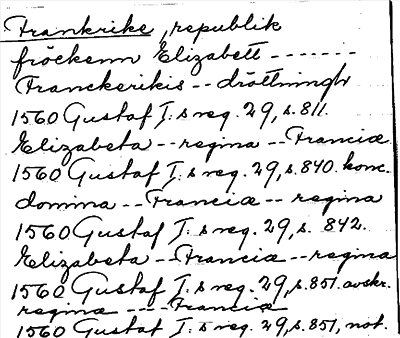 Frankrike, republik
fröckenn Elizabett -------
Franckerikis -- dråttningh
1560 Gustaf I:s reg. 29, s. 811.
Elizabeta -- regina -- Franciæ
1560 Gustaf I:s reg. 29, s. 840. konc.
domina -- Franciæ -- regina
1560 Gustaf I:s reg. 29, s. 842.
Elizabeta -- Franciæ -- regina
1560 Gustaf I:s reg. 29, s. 851. avskr.
regina ---- Franciæ
1560 Gustaf I:s reg. 29, s. 851, not.